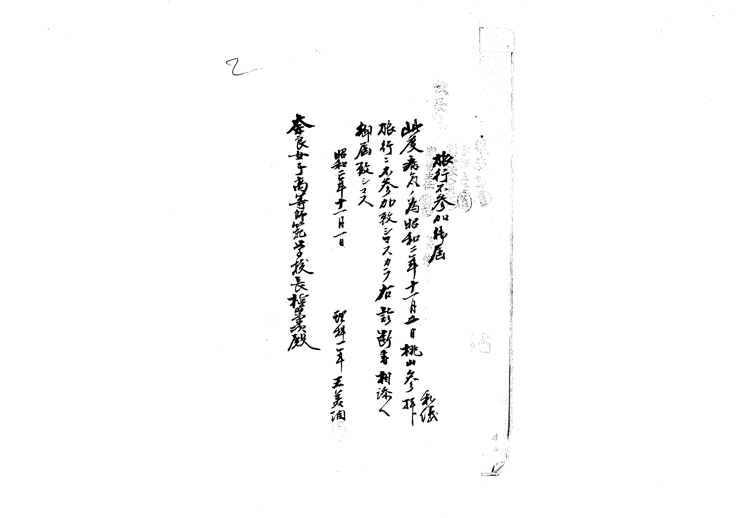 旅行不参加御届
私儀
此度病気ノ為昭和二年十一月五日桃山参拝
旅行ニ不参加致シマスカラ右診断書相添ヘ
御届致シマス
昭和二年十一月一日
理科一年 王
奈良女子高等師範学校長 殿
2